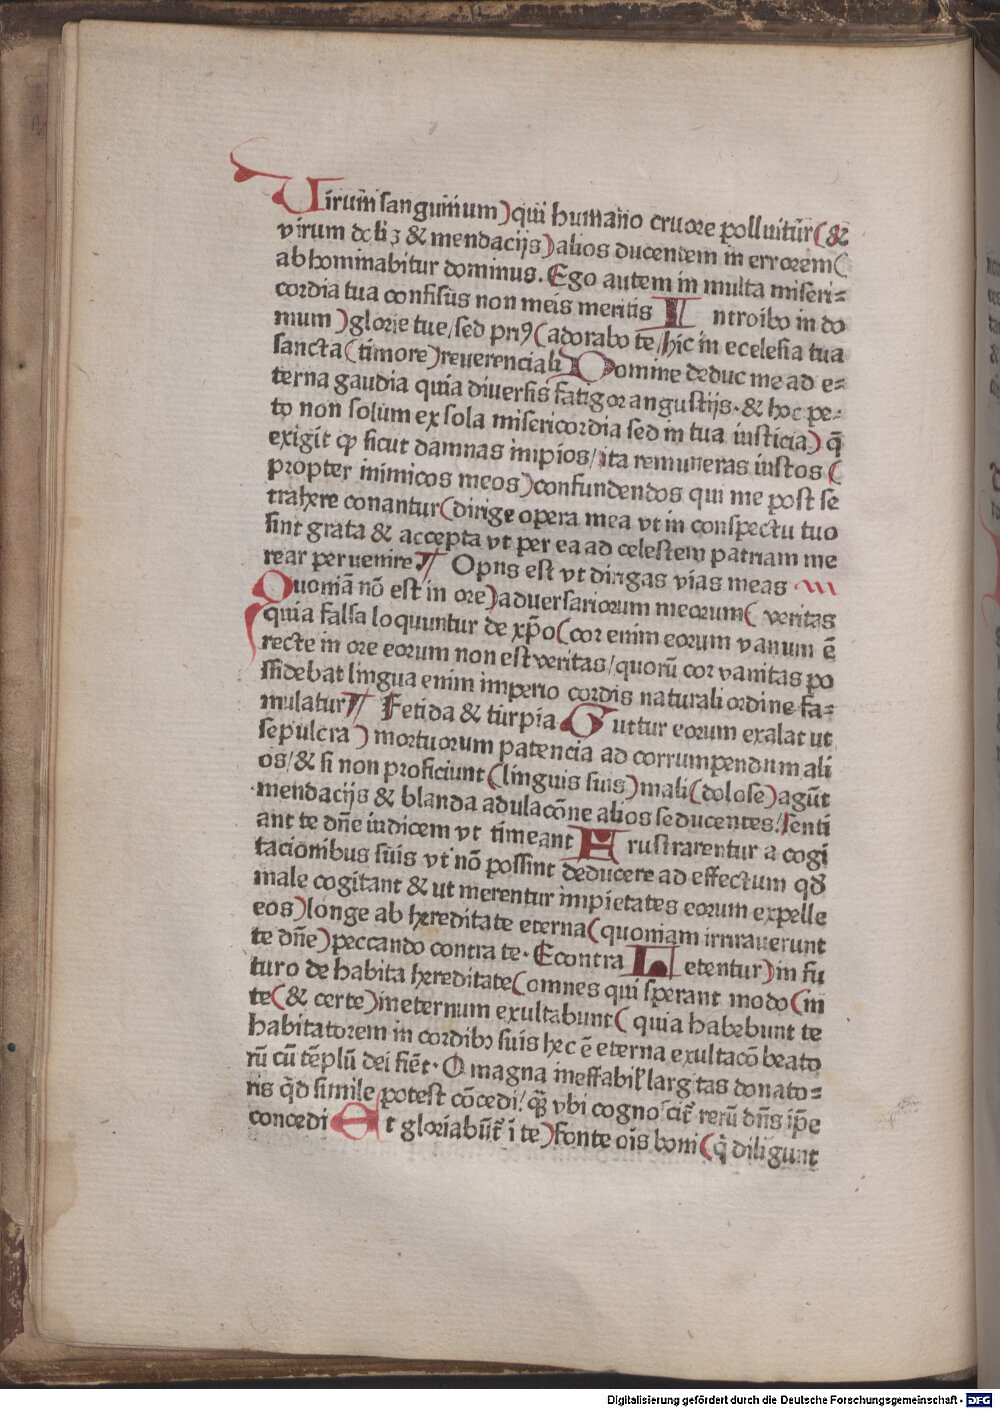 Uirum sanguinum) qui humano cruore polluitur( &
virum doli ʒ & mendacijs) alios ducentem in errorem(
abhominabitur dominus. Ego autem in multa miseri=
cordia tua confisus non meis meritis Introibo in do
mum) glorie tue/ sed priꝰ( adorabo te/ hic in ecclesia tua
sancta( timore) reuerenciali Domine deduc me ad e=
terna gaudia quia diuersis fatigor angustijs. & hoc pe=
to non solum ex sola misericordia sed in tua iusticia) q̄
exigit ꝙ sicut damnas impios/ ita remuneras iustos(
propter inimicos meos) confundendos qui me post se
trahere conantur( dirige opera mea vt in conspectu tuo
sint grata & accepta vt per ea ad celestem patriam me
rear peruenire Opus est vt dirigas vias meas
Quoniā nō est in ore) aduersariorum meorum( veritas
quia falsa loquuntur de xp̄o( cor enim eorum vanum ē
recte in ore eorum non est veritas/ quorū cor vanitas po
ssidebat lingua enim imperio cordis naturali ordine fa=
mulatur Fetida & turpia Guttur eorum exalat ut
sepulcra) mortuorum patencia ad corrumpendum ali
os/ & si non proficiunt( linguis suis) mali( dolose) agūt
mendacijs & blanda adulacōne alios seducentes/ senti
ant te dn̄e iudicem vt timeant Frustrarentur a cogi
tacionibus suis vt nō possint deducere ad effectum qd̄
male cogitant & ut merentur impietates eorum expelle
eos) longe ab hereditate eterna( quoniam irritauerunt
te dn̄e) peccando contra te. Econtra Letentur) in fu
turo de habita hereditate( omnes qui sperant modo( in
te( & certe) ineternum exultabunt( quia habebunt te
habitatorem in cordibꝰ suis hec ē eterna exultacō beato
rū cū tēplū dei fiēt. O magna ineffabil' largitas donato=
ris q̄d simile potest cōcedi/ q̄ȝ vbi cognoscit᷑ rerū dn̄s ip̄e
concedi Et gloriabūt᷑ ī te) fonte oīs boni( q̄ diligunt
Digitalisierung gefördert durch die Deutsche Forschungsgemeinschaft - DFG